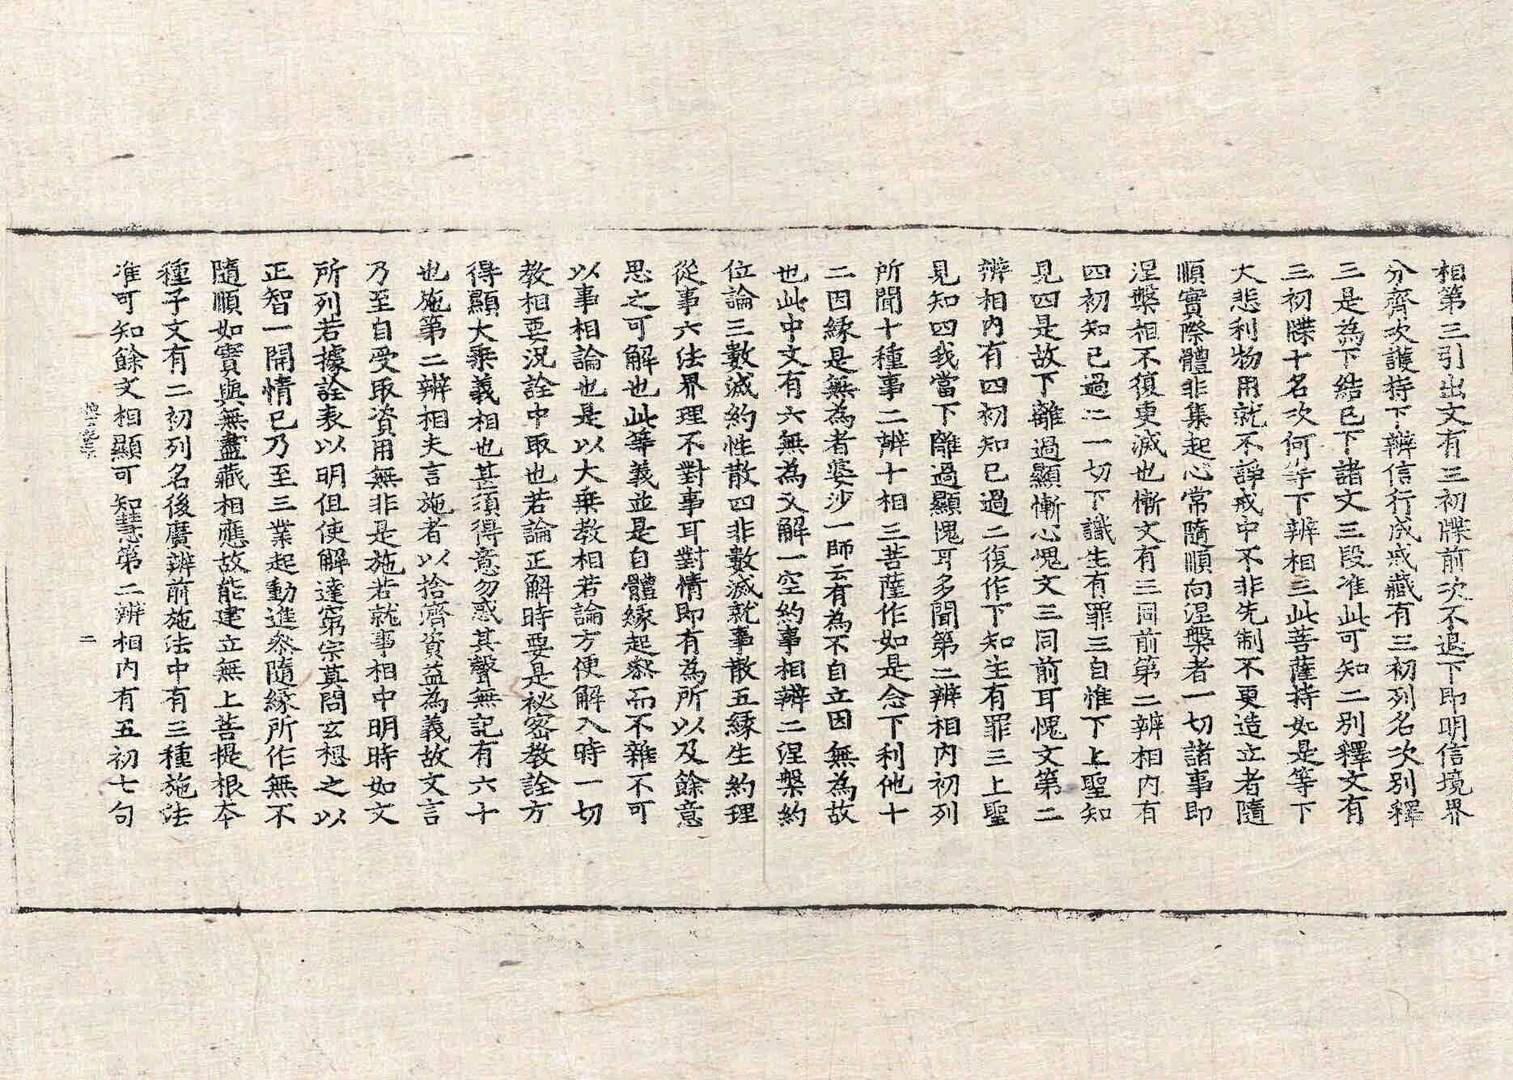 相第三引出文有三初牒前次不退下即明信境界
分齊次護持下辨信行成戒藏有三初列名次別釋
三是為下結已下諸文三段准此可知二別釋文有
三初牒十名次何等下辨相三此菩薩持如是等下
大悲利物用就不諍戒中不非先制不更造立者隨
順實際體非集起心常隨順向涅槃者一切諸事即
涅槃相不復更滅也慚文有三同前第二辨相內有
四初知已過二一切下識生有罪三自惟下上聖知
見四是故下離過顯慚心愧文三同前耳愧文第二
辨相內有四初知已過二復作下知生有罪三上聖
見知四我當下離過顯愧耳多聞第二辨相內初列
所聞十種事二辨十相三菩薩作如是念下利他十
二因緣是無為者婆沙一師云有為不自立因無為故
也此中文有六無為又解一空約事相辨二涅槃約
位論三數滅約性散四非數滅就事散五緣生約理
從事六法界理不對事耳對情即有為所以及餘意
思之可解也此等義並是自體緣起祭而不雜不可
以事相論也是以大乘教相若論方便解入時一切
教相要況詮中取也若論正解時要是祕密教詮方
得顯大乘義相也甚須得意勿惑其聲無記有六十
也施第二辨相夫言施者以捨濟資益為義故文言
乃至自受取資用無非是施若就事相中明時如文
所列若據詮表以明但使解達窮宗莫問玄想之以
正智一開情已乃至三業起動進忝隨緣所作無不
隨順如實與無盡藏相應故能建立無上菩提根本
種子文有二初列名後廣辨前施法中有三種施法
准可知餘文相顯可知智慧第二辨相內有五初七句
二